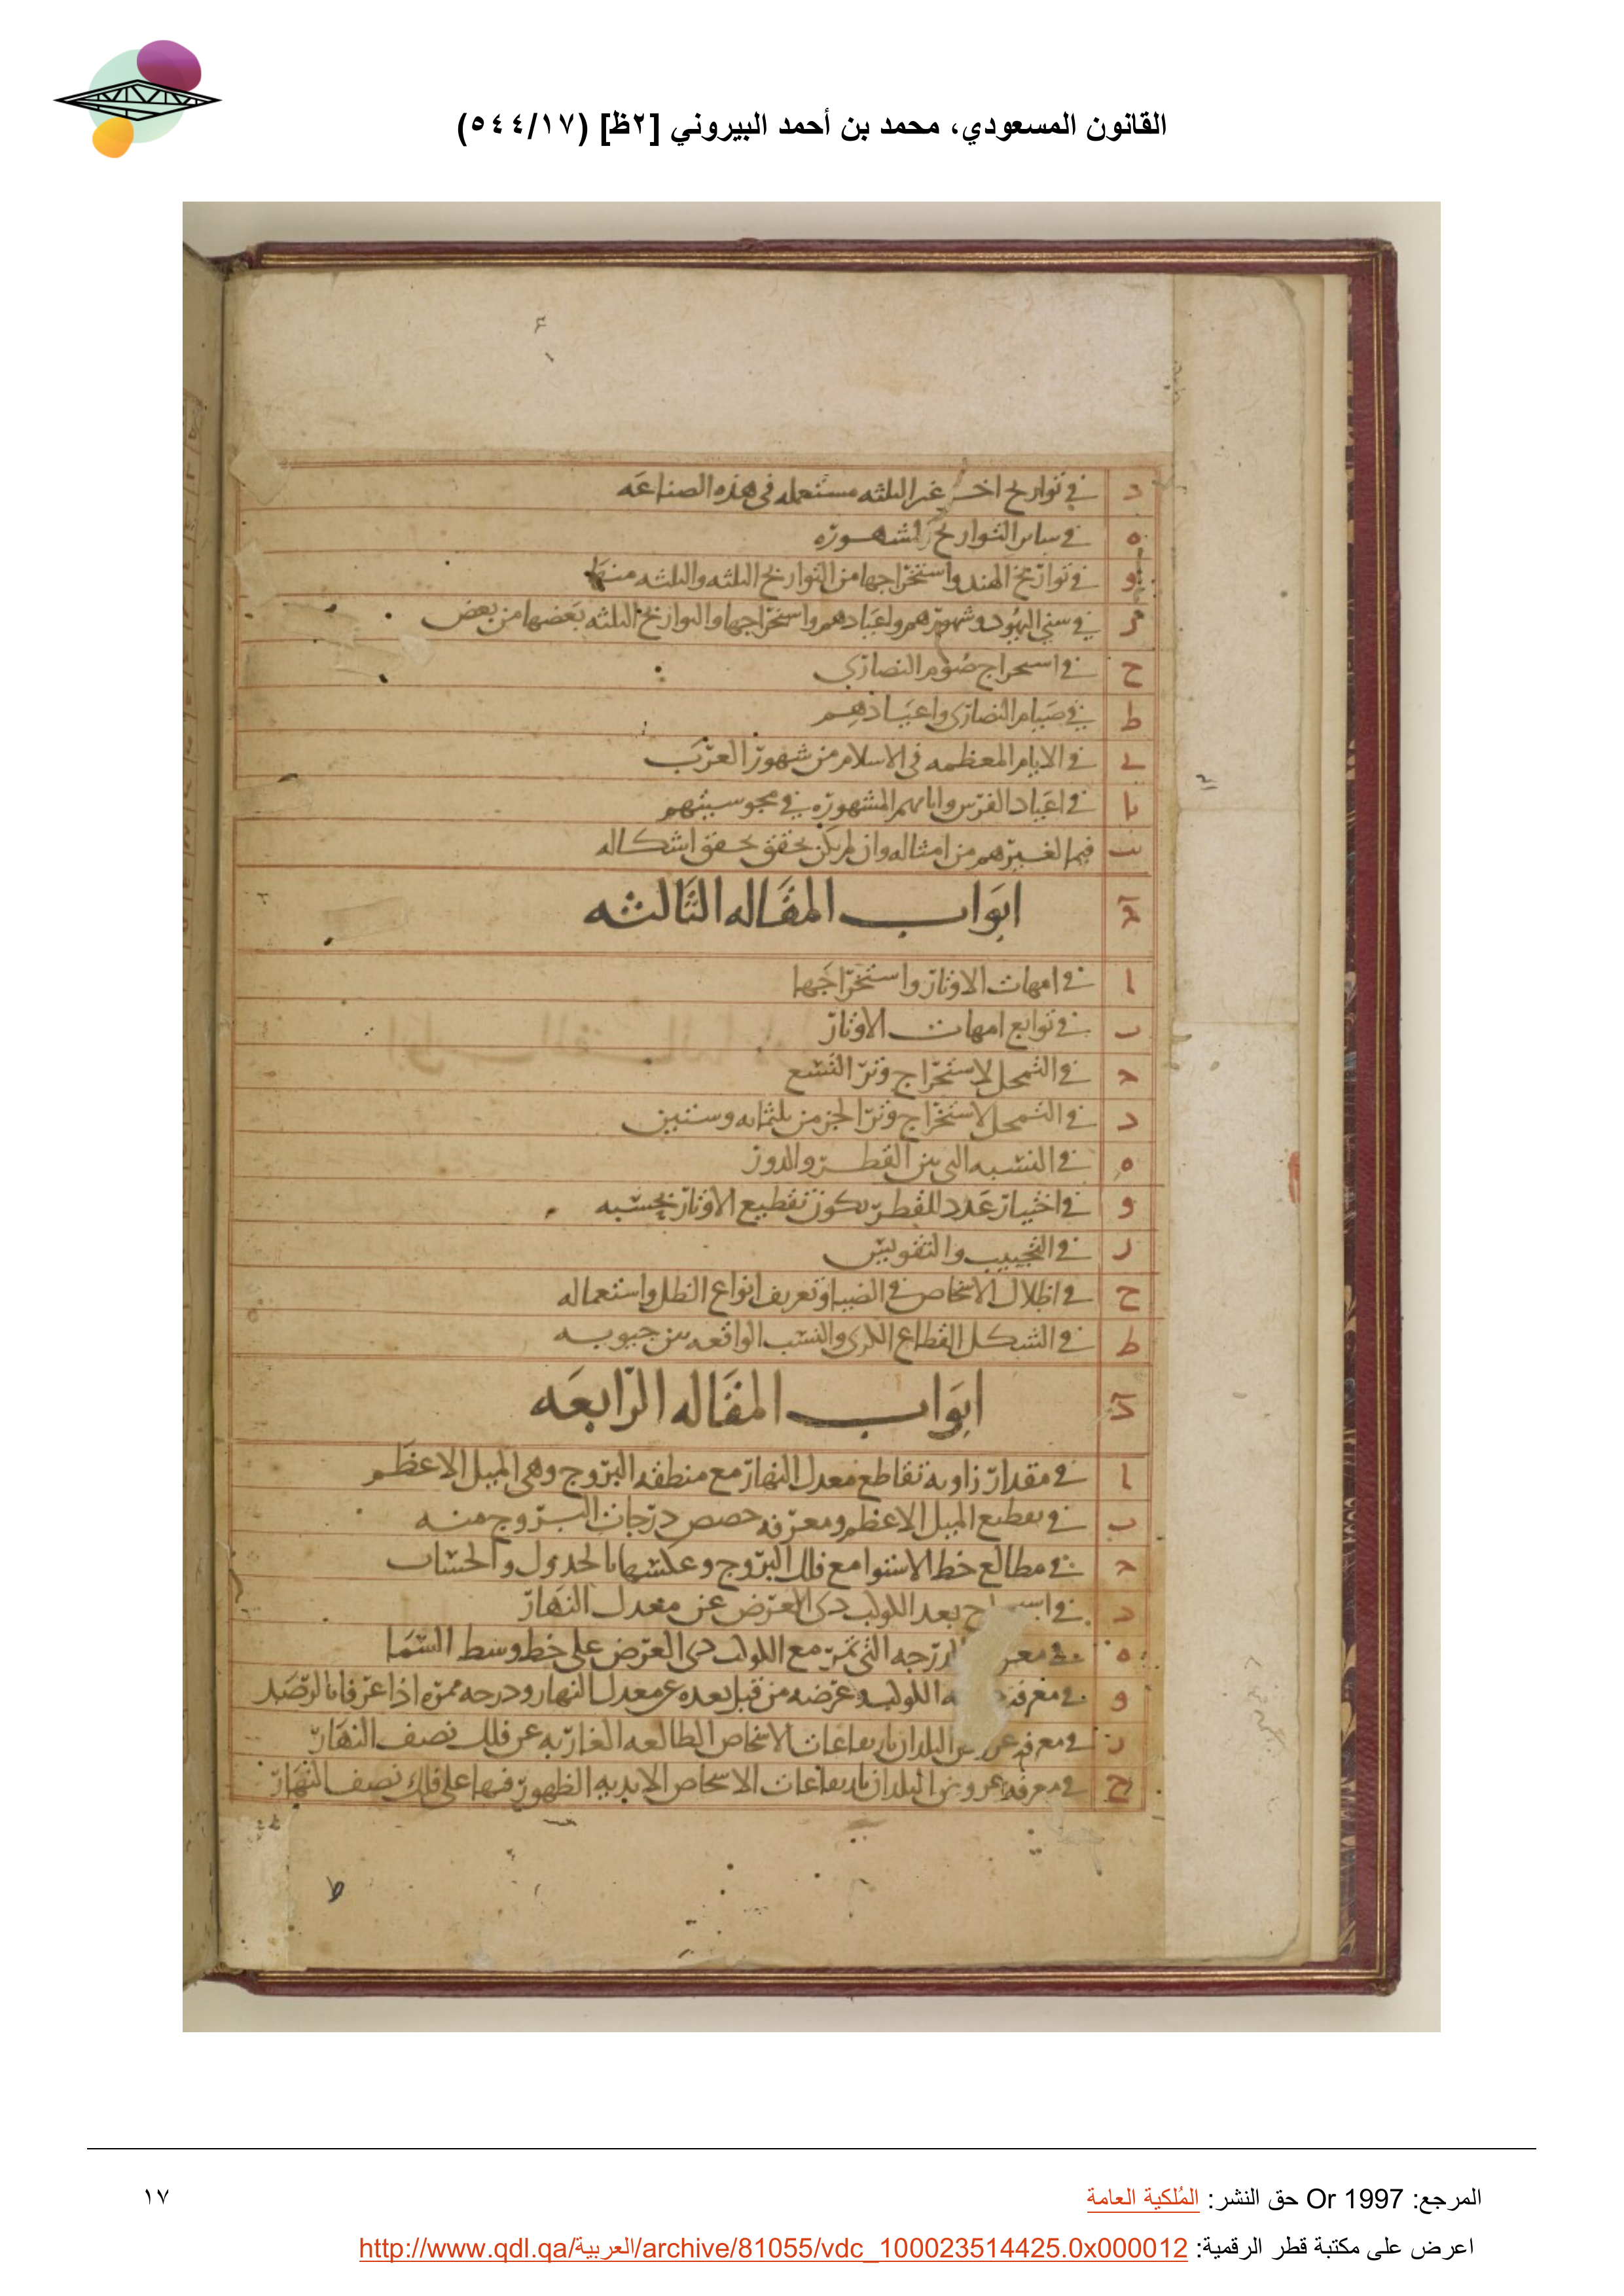 القانون المسعودي، محمد بن أحمد البيروني [٢ظ] (٥٤٤/١٧)
د في تواريخ اخر غير الثلثه مستعمله في هذه الصناعه
ه في ساير التواريخ المشهوره
و في تواريخ الهند واستخراجها من التواريخ الثلثه والثلثه منها
ز في سني اليهود وشهورهم واعيادهم واستخراجها والتواريخ الثلثه بعضها من بعض
ح في استخراج صوم النصارى
ط في صيام النصارى واعيادهم
ي في الايام المعظمه في الاسلام من شهور العرب
يا في اعياد الفرس وايامهم المشهوره في مجوسيتهم
يب فيما لغيرهم من امثاله وان لم يكن تحقق تحقق اشكاله
ج ابواب المقاله الثالثه
ا في امهات الاوتار واستخراجها
ب في توابع امهات الاوتار
ج في التمحل لاستخراج وتر التسع
د في التمحل لاستخراج وتر الجز من ثلثمايه وستين
ه في النسبه التي بين القطر والدور
و في اختيار عدد للقطر يكون تقطيع الاوتار بحسبه
ز في التجييب والتقويس
ح في اظلال الاشخاص في الضيا وتعريف انواع الظل واستعماله
ط في الشكل القطاع الكرى والنسب الواقعه بين جيوبه
د ابواب المقاله الرابعه
ا في مقدار زاويه تقاطع معدل النهار مع منطقه البروج وهي الميل الاعظم
ب في تقطيع الميل الاعظم ومعرفه حصص درجات البروج منه
ج في مطالع خط الاستوا مع فلك البروج وعكسها بالجدول والحساب
د في بعد الكوكب ذى العرض عن معدل النهار
ه في الدرجه التي تمر مع الكوكب ذى العرض على خط وسط السما
و في معرفه الكوكب وعرضه من قبل بعده عن معدل النهار ودرجه ممره اذا عرفا بالرصد
ز في معرفه عروض البلدان بارتفاعات الاشخاص الطالعه الغاربه عن فلك نصف النهار
ح في معرفه عروض البلدان بارتفاعات الاشخاص الابديه الظهور فيها على فلك نصف النهار
المرجع: Or 1997 حق النشر: المُلكية العامة
١٧
اعرض على مكتبة قطر الرقمية: http://www.qdl.qa/العربية/archive/81055/vdc_100023514425.0x000012